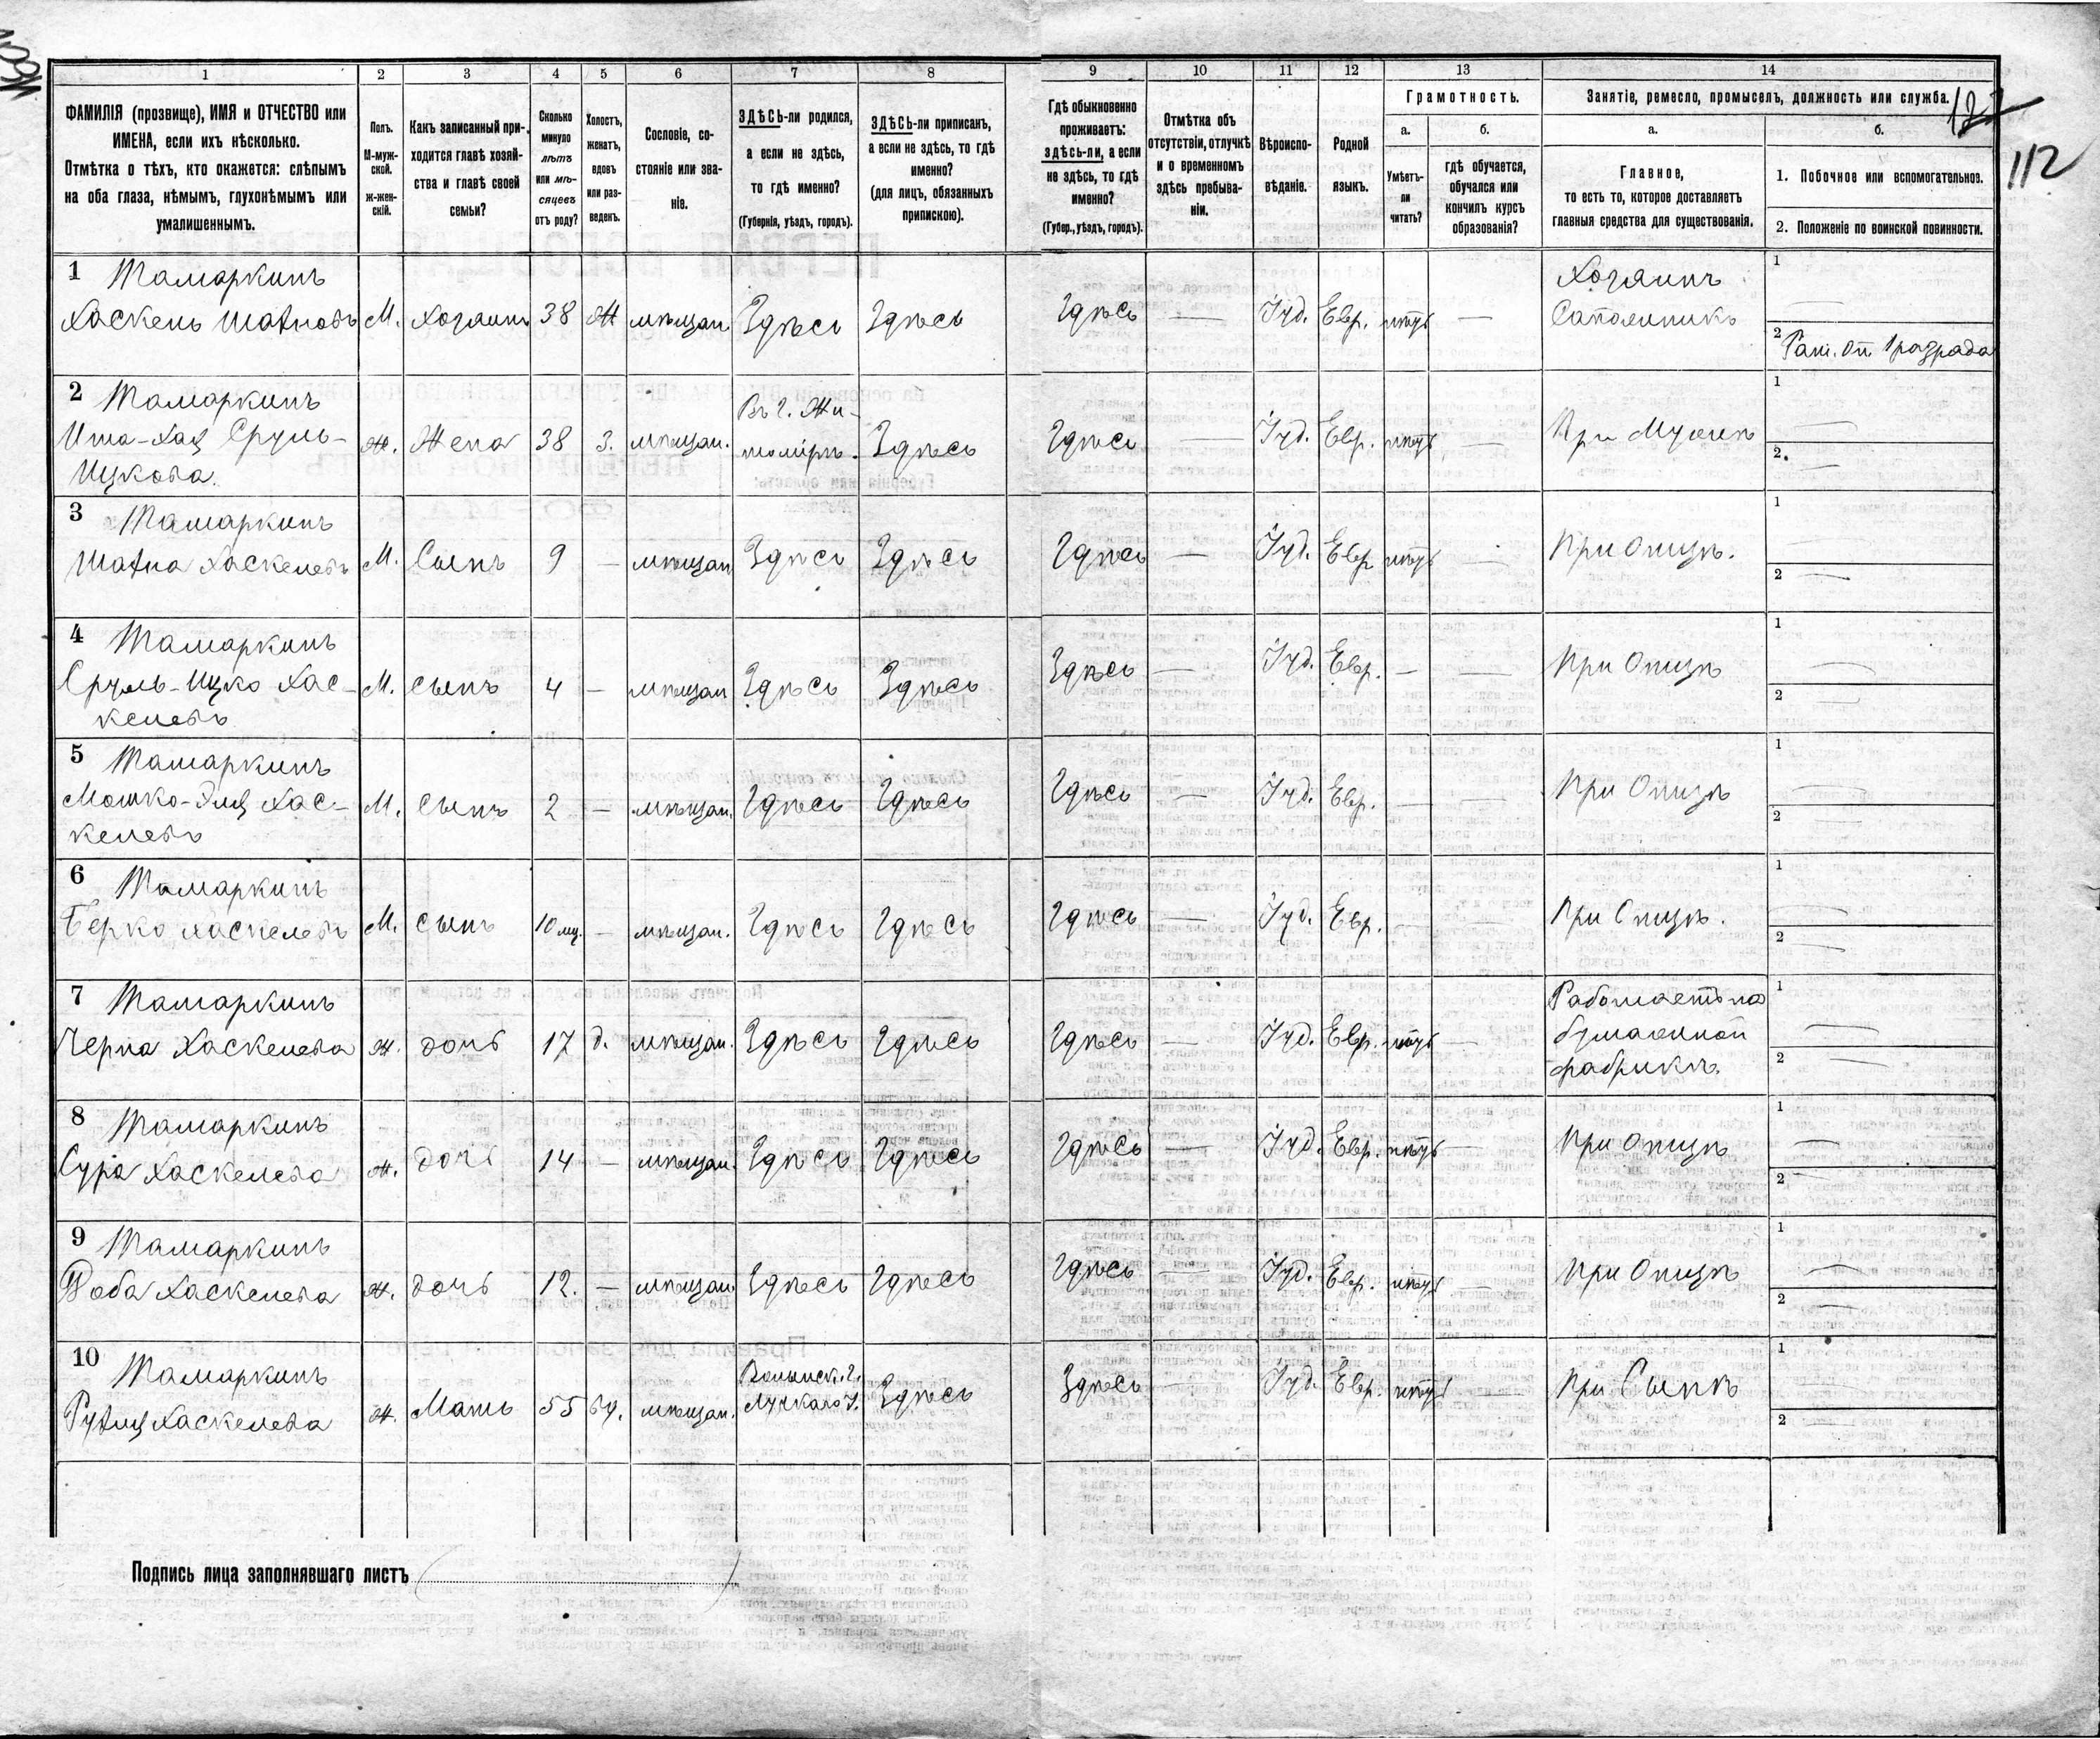 1 2 3 4 5 6 7 8 9 10 11 12 13 14
ФАМИЛІЯ (прозвище), ИМЯ и ОТЧЕСТВО или
ИМЕНА, если ихъ нѣсколько.
Отмѣтка о тѣхъ, кто окажется: слѣпымъ
на оба глаза, нѣмымъ, глухонѣмымъ или
умалишеннымъ.
Полъ.
М-муж-
ской.
ж-жен-
скій.
Какъ записанный при-
ходится главѣ хозяй-
ства и главѣ своей
семьи?
Сколько
минуло
лѣтъ
или мѣ-
сяцевъ
отъ роду?
Холостъ,
женатъ,
вдовъ
или раз-
веденъ.
Сословіе, со-
стояніе или зва-
ніе.
ЗДѢСЬ-ли родился,
а если не здѣсь,
то гдѣ именно?
(Губернія, уѣздъ, городъ).
ЗДѢСЬ-ли приписанъ,
а если не здѣсь, то гдѣ
именно?
(для лицъ, обязанныхъ
припискою).
Гдѣ обыкновенно
проживаетъ:
здѣсь-ли, а если
не здѣсь, то гдѣ
именно?
(Губер., уѣздъ, городъ).
Отмѣтка объ
отсутствіи, отлучкѣ
и о временномъ
здѣсь пребыва-
ніи.
Вѣроиспо-
вѣданіе.
Родной
языкъ.
Грамотность.
а.
Умѣетъ-
ли
читать?
б.
гдѣ обучается,
обучался или
кончилъ курсъ
образованія?
Занятіе, ремесло, промыселъ, должность или служба.
а.
Главное,
то есть то, которое доставляетъ
главныя средства для существованія.
б.
1. Побочное или вспомогательное.
2. Положеніе по воинской повинности.
112
1 Тамаркинъ
Хаскель М. Хозяинъ 38 Ж мѣщан Здѣсь Здѣсь Здѣсь — Іуд. Евр. — Хозяинъ
Сапожникъ 1 —
2
2 Тамаркинъ
Ита-Хая Сруль-
Ицкова. ж. Жена 38 З. мѣщан. Въ г. Жи-
томірѣ. Здѣсь Здѣсь — Іуд. Евр. — При Мужѣ 1 —
2. —
3 Тамаркинъ
Хаскелевъ М. Сынъ 9 — мѣщан Здѣсь Здѣсь Здѣсь — Іуд. Евр — При Отцѣ. 1 —
2 —
4 Тамаркинъ
Сруль-Ицко Хас-
келевъ М. Сынъ 4 — мѣщан Здѣсь Здѣсь Здѣсь — Іуд. Евр. — — При Отцѣ 1 —
2 —
5 Тамаркинъ
Мошко-Эля Хас-
келевъ М. Сынъ 2 — мѣщан. Здѣсь Здѣсь Здѣсь — Іуд. Евр. — — При Отцѣ 1 —
2 —
6 Тамаркинъ
Берко Хаскелевъ М. Сынъ 10 мц. — мѣщан. Здѣсь Здѣсь Здѣсь — Іуд. Евр. — — При Отцѣ. 1 —
2 —
7 Тамаркинъ
Черна Хаскелева ж. дочь 17 д. мѣщан. Здѣсь Здѣсь Здѣсь — Іуд. Евр. — Работаетъ на
бумажной
фабрикѣ. 1 —
2 —
8 Тамаркинъ
Сура Хаскелева ж. дочь 14 — мѣщан. Здѣсь Здѣсь Здѣсь — Іуд. Евр. — При Отцѣ 1 —
2 —
9 Тамаркинъ
Хаскелева ж. дочь 12. — мѣщан Здѣсь Здѣсь Здѣсь — Іуд. Евр. — При Отцѣ 1 —
2 —
10 Тамаркинъ
Хаскелева ж. Мать 55 мѣщан. Волынск. г.
Луцкаго У. Здѣсь Здѣсь — Іуд. Евр. — При Сынѣ 1
2 —
Подпись лица заполнявшаго листъ